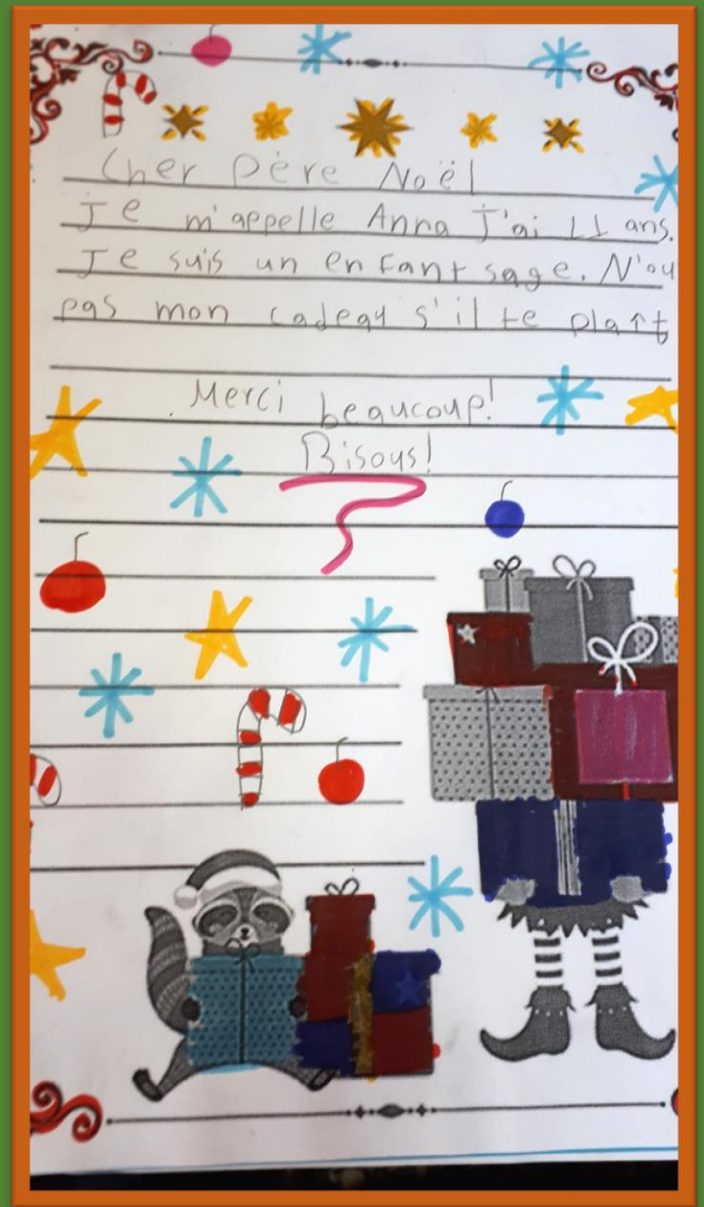 Cher Père Noël
Je m'appelle Anna J'ai 11 ans.
Je suis un enfant sage. N'ou
pas mon cadeau s'il te plaît
Merci beaucoup!
Bisous!